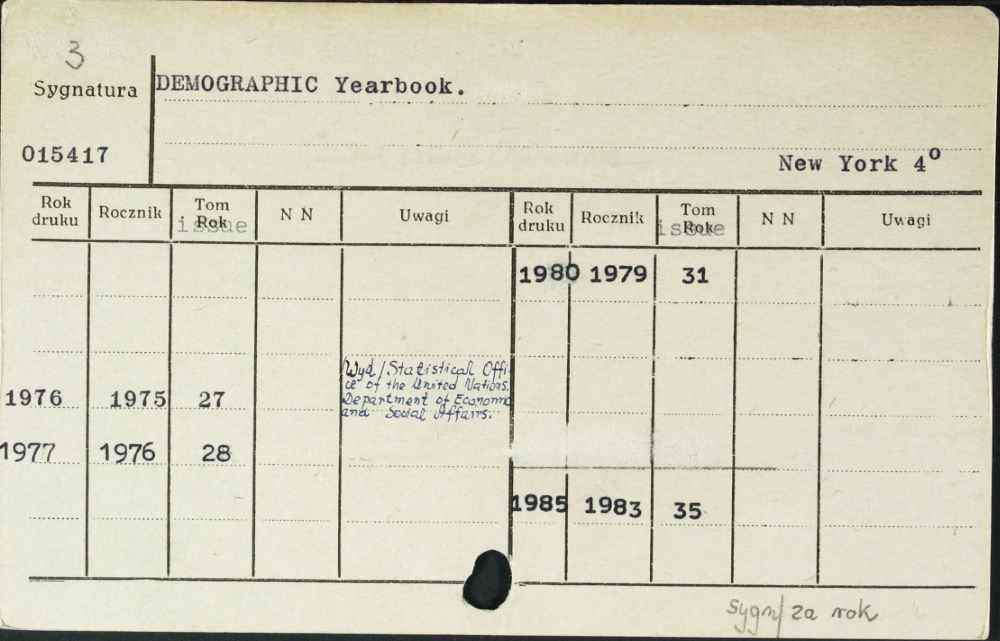 3
Sygnatura DEMOGRAPHIC Yearbook.
015417
New York 4º
Rok druku Rocznik Tom Rok issue N N Uwagi Rok druku Rocznik Tom Rok issue N N Uwagi
1980 1979 31
Wyd/Statistical Offi-
ce of the United Nations.
1976 1975 27 Department of Economic
and Social Affairs.
1977 1976 28
1985 1983 35
sygn/za rok